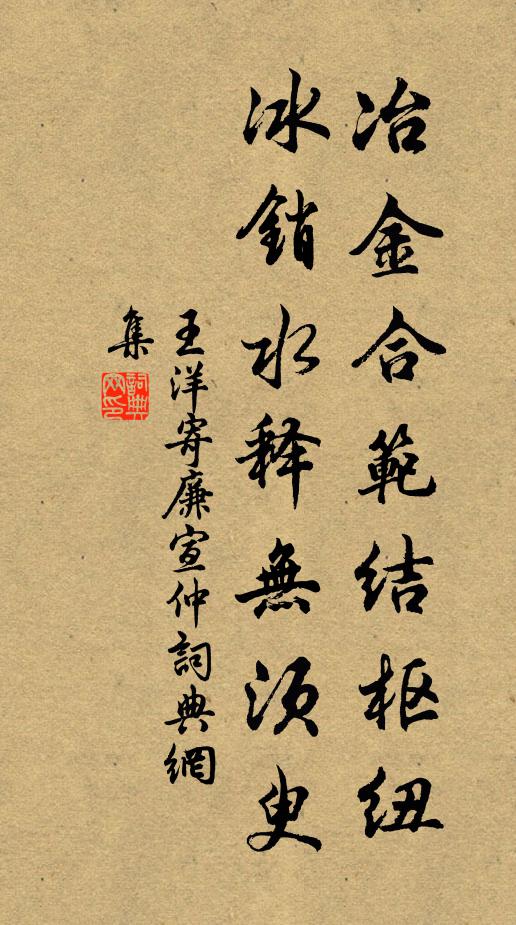 冶金合範结枢纽
冰銷水釋無須臾
王洋寄廉宣仲詞典網
集
詞典網印